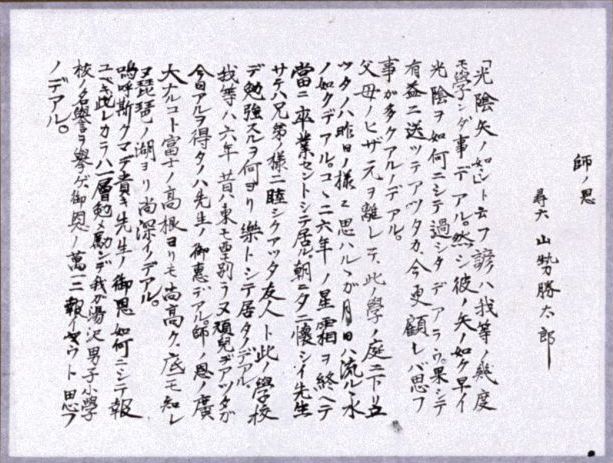 師ノ恩
尋六 山勢勝太郎
「光陰矢ノ如シ」ト云フ諺ハ我等ノ幾度
モ學ンダ事デアル然シ彼ノ矢ノ如ク早イ
光陰ヲ如何ニシテ過シタデアラウ。果シテ
有益ニ送ツテアツタカ、今更顧レバ思フ
事が多クアルノデアル。
父母ノヒザ元ヲ離レテ、此ノ學ノ庭ニ下リ立
ツタノハ昨日ノ様ニ思ハルヽガ月日ハ流ルヽ水
ノ如クデアル。コヽニ六年ノ星霜ヲ終ヘテ
當ニ卒業セントシテ居ル。朝ニ夕ニ懷シイ先生
サテハ兄弟ノ様ニ睦シクアツタ友人ト此ノ學校
デ勉強スルヲ何ヨリ樂トシテ居タノデアル。
我等ハ六年ノ昔ハ東モ西モ別ラヌ頑兒デアツタガ
今日アルヲ得タノハ先生ノ御惠デアル師ノ恩ノ廣
大ナルコト富士ノ高根ヨリモ尚高ク、底モ知レ
ヌ琵琶ノ湖ヨリ尚深イノデアル。
嗚呼斯クマデ貴キ先生ノ御恩如何ニシテ報
ユベキ此レカラハ一層勉メ勵ンデ我が湯沢男子小學
校ノ名譽ヲ擧ゲ御恩ノ萬一ニ報イヤウト思フ
ノデアル。